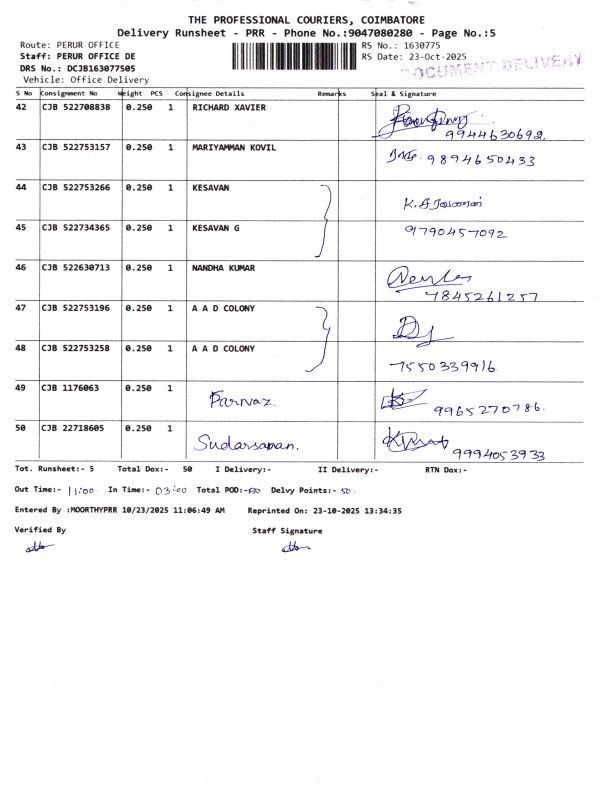 THE PROFESSIONAL COURIERS, COIMBATORE
Delivery Runsheet - PRR - Phone No.:9047080280 - Page No.:5
Route: PERUR OFFICE
RS No.: 1630775
Staff: PERUR OFFICE DE
RS Date: 23-Oct-2025
DOCUMENT DELIVERY
DRS No.: DCJB163077505
Vehicle: Office Delivery
S No Consignment No Weight PCS Consignee Details Remarks Seal & Signature
42 CJB 522708838 0.250 1 RICHARD XAVIER
9944630692
43 CJB 522753157 0.250 1 MARIYAMMAN KOVIL
9894650433
44 CJB 522753266 0.250 1 KESAVAN
45 CJB 522734365 0.250 1 KESAVAN G
9790457092
46 CJB 522630713 0.250 1 NANDHA KUMAR
7845261257
47 CJB 522753196 0.250 1 A A D COLONY
48 CJB 522753258 0.250 1 A A D COLONY
7550339916
49 CJB 1176063 0.250 1 Parvaz
9965270786.
50 CJB 22718605 0.250 1 Sudarsanan.
9994053933
Tot. Runsheet:- 5 Total Dox:- 50 I Delivery:- II Delivery:- RTN Dox:-
Out Time:- 11:00 In Time:- 03:00 Total POD:-50 Delvy Points:- 50.
Entered By :MOORTHYPRR 10/23/2025 11:06:49 AM Reprinted On: 23-10-2025 13:34:35
Verified By Staff Signature